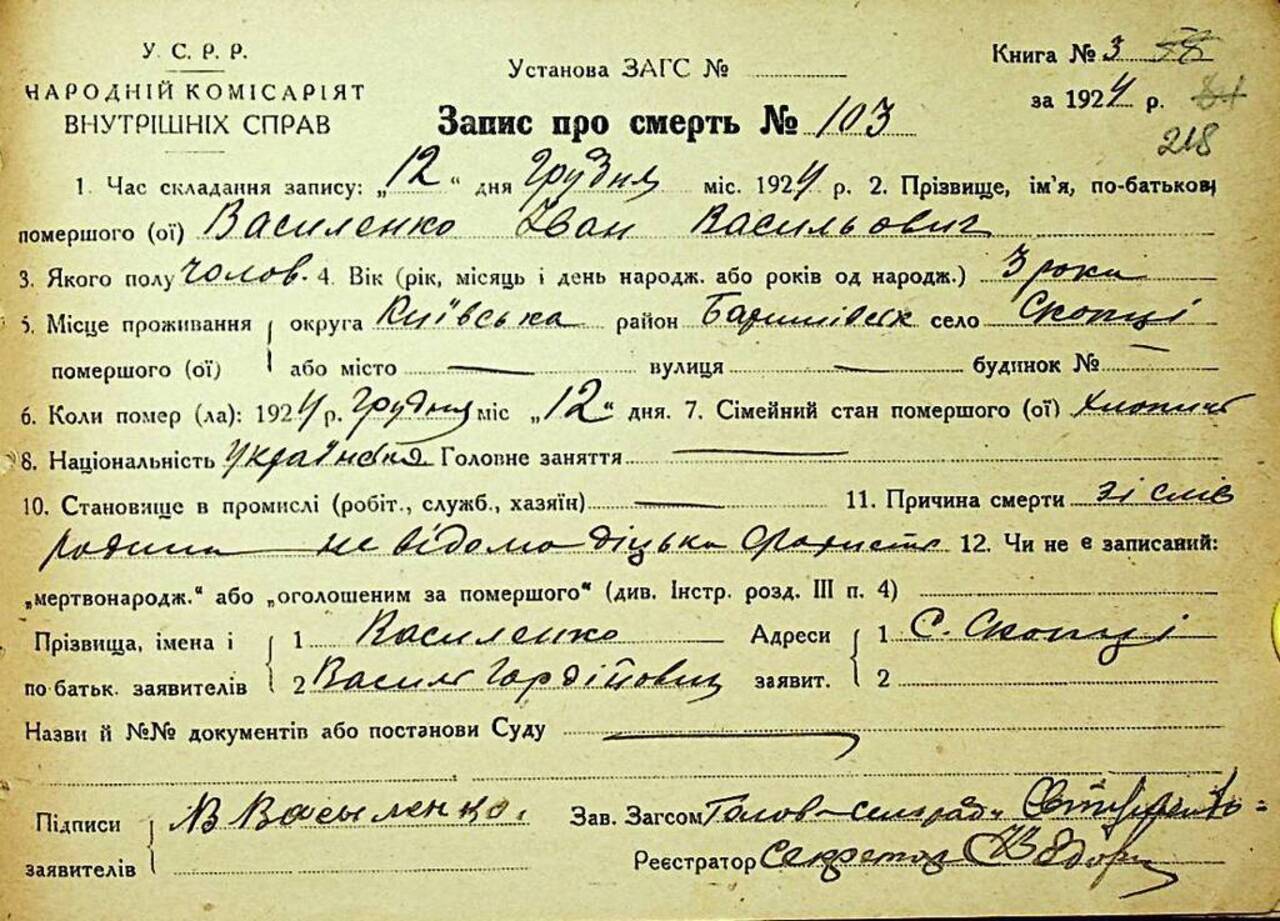 У. С. Р. Р.
НАРОДНІЙ КОМІСАРІЯТ
ВНУТРІШНІХ СПРАВ
Установа ЗАГС №
Книга № 3 58
за 1924 р. 81
218
Запис про смерть № 103
1. Час складання запису: „12“ дня Грудня міс. 1924 р. 2. Прізвище, ім'я, по-батькові
помершого (ої) Василенко Іван Васильович
3. Якого полу чолов. 4. Вік (рік, місяць і день народж. або років од народж.) 3 роки
5. Місце проживання округа Київська район Баришівськ село Скопці
помершого (ої) або місто — вулиця — будинок № —
6. Коли помер (ла): 1924 р. Грудня міс „12“ дня. 7. Сімейний стан помершого (ої) хлопчик
8. Національність Українська Головне заняття —
10. Становище в промислі (робіт., служб., хазяїн) — 11. Причина смерти зі слів
родини не відомо 12. Чи не є записаний:
„мертвонародж.“ або „оголошеним за помершого“ (див. Інстр. розд. III п. 4)
Прізвища, імена і 1 Василенко Адреси 1 С. Скопці
по батьк. заявителів 2 Василь Гордійович заявит. 2
Назви й №№ документів або постанови Суду —
Підписи В Василенко. Зав. Загсом Голов сельради
заявителів Реєстратор Секретар